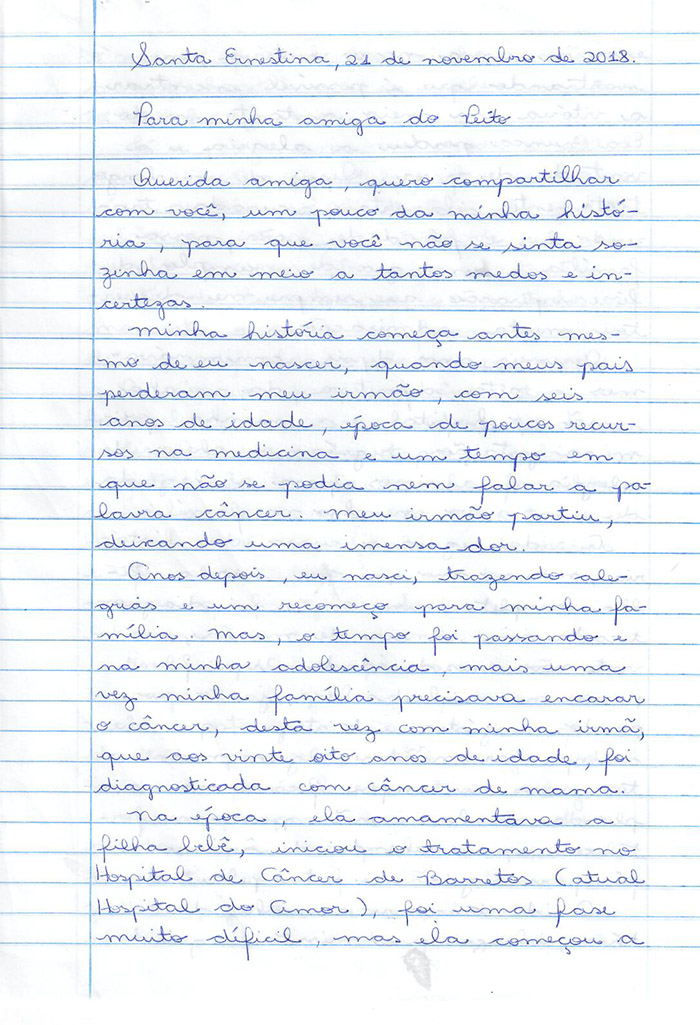 Santa Ernestina, 21 de novembro de 2018.
Para minha amiga do Peito
Querida amiga, quero compartilhar
com você, um pouco da minha histó-
ria, para que você não se sinta so-
zinha em meio a tantos medos e in-
certezas.
Minha história começa antes mes-
mo de eu nascer, quando meus pais
perderam meu irmão, com seis
anos de idade, época de poucos recur-
sos na medicina e um tempo em
que não se podia nem falar a pa-
lavra câncer. Meu irmão partiu,
deixando uma imensa dor.
Anos depois, eu nasci, trazendo ale-
grias e um recomeço para minha fa-
mília. Mas, o tempo foi passando e
na minha adolescência, mais uma
vez minha família precisava encarar
o câncer, desta vez com minha irmã,
que aos vinte oito anos de idade, foi
diagnosticada com câncer de mama.
Na época, ela amamentava a
filha bebê, iniciou o tratamento no
Hospital de Câncer de Barretos (atual
Hospital do Amor), foi uma fase
muito díficil, mas ela começou a